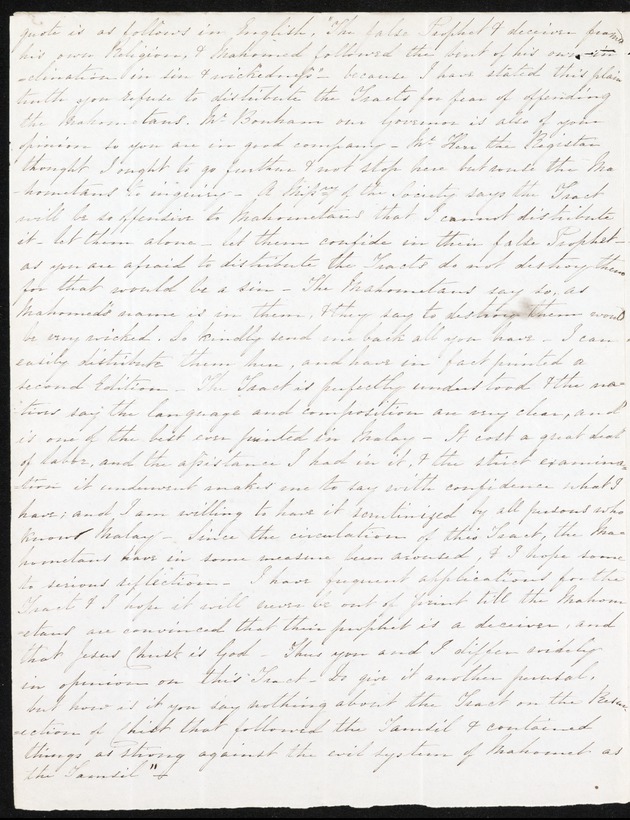 quote is as follows in English, "The false Prophet & deceiver framed
his own Religion, & Mahomed followed the bent of his own in
-clination in sin & wickedness" because I have stated this plain
truth you refuse to distribute the Tracts for fear of offending
the Mahometans. Mr Bonham our Governor is also of your
opinion so you are in good company - Mr Herr the Registar
thought I ought to go further & not stop here but rouse the Ma
-hometans to inquiries - A Missy of the Society says the Tract
will be so offensive to Mahometans that I cannot distribute
it - let them alone - let them confide in their false Prophet -
as you are afraid to distribute the Tracts do not destroy them
for that would be a sin - The Mahometans say so, as
Mahomed's name is in them, & they say to destroy them would
be very wicked. So kindly send me back all you have - I can
easily distribute them here, and have in fact printed a
second Edition - The Tract is perfectly understood & the na-
tives say the language and composition are very clear, and
is one of the best ever printed in Malay - It cost a great deal
of labor, and the assistance I had in it, & the strict examina-
tion it underwent makes me to say with confidence what I
have; and I am willing to have it scrutinized by all persons who
know Malay - Since the circulation of this Tract, the Ma-
hometans have in some measure been aroused, & I hope some
to serious reflection - I have frequent applications for the
Tract & I hope it will never be out of print till the Mahom
-etans are convinced that their prophet is a deceiver, and
that Jesus Christ is God - Thus you and I differ widely
in opinion on this Tract - Do give it another perusal,
but how is it you say nothing about the Tract on the Resur
-ection of Christ that followed the Tamsil & contained
things as strong against the evil system of Mahomet as
the Tamsil"